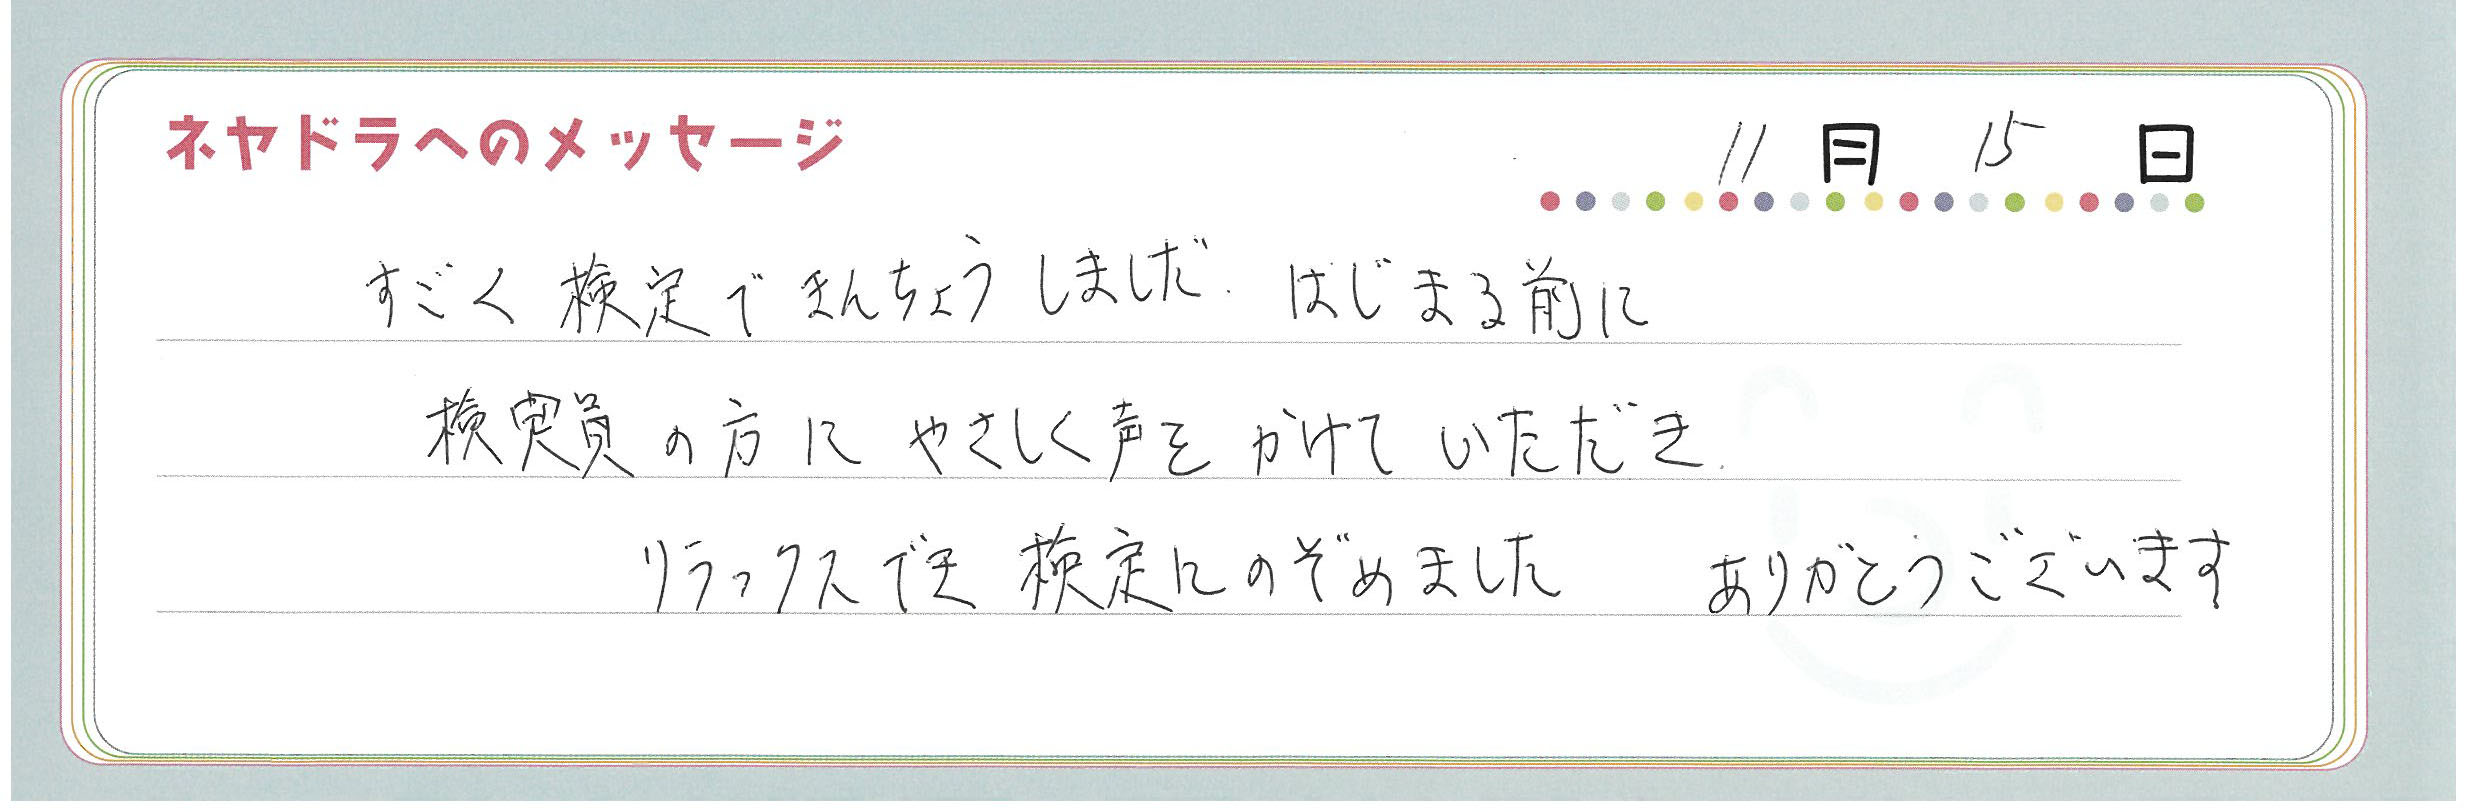 ネヤドラへのメッセージ
11月 15日
すごく検定できんちょうしましただ. はじまる前に
検定員の方に やさしく声を かけて いただき.
リラックスでき 検定にのぞめました ありがとうございます